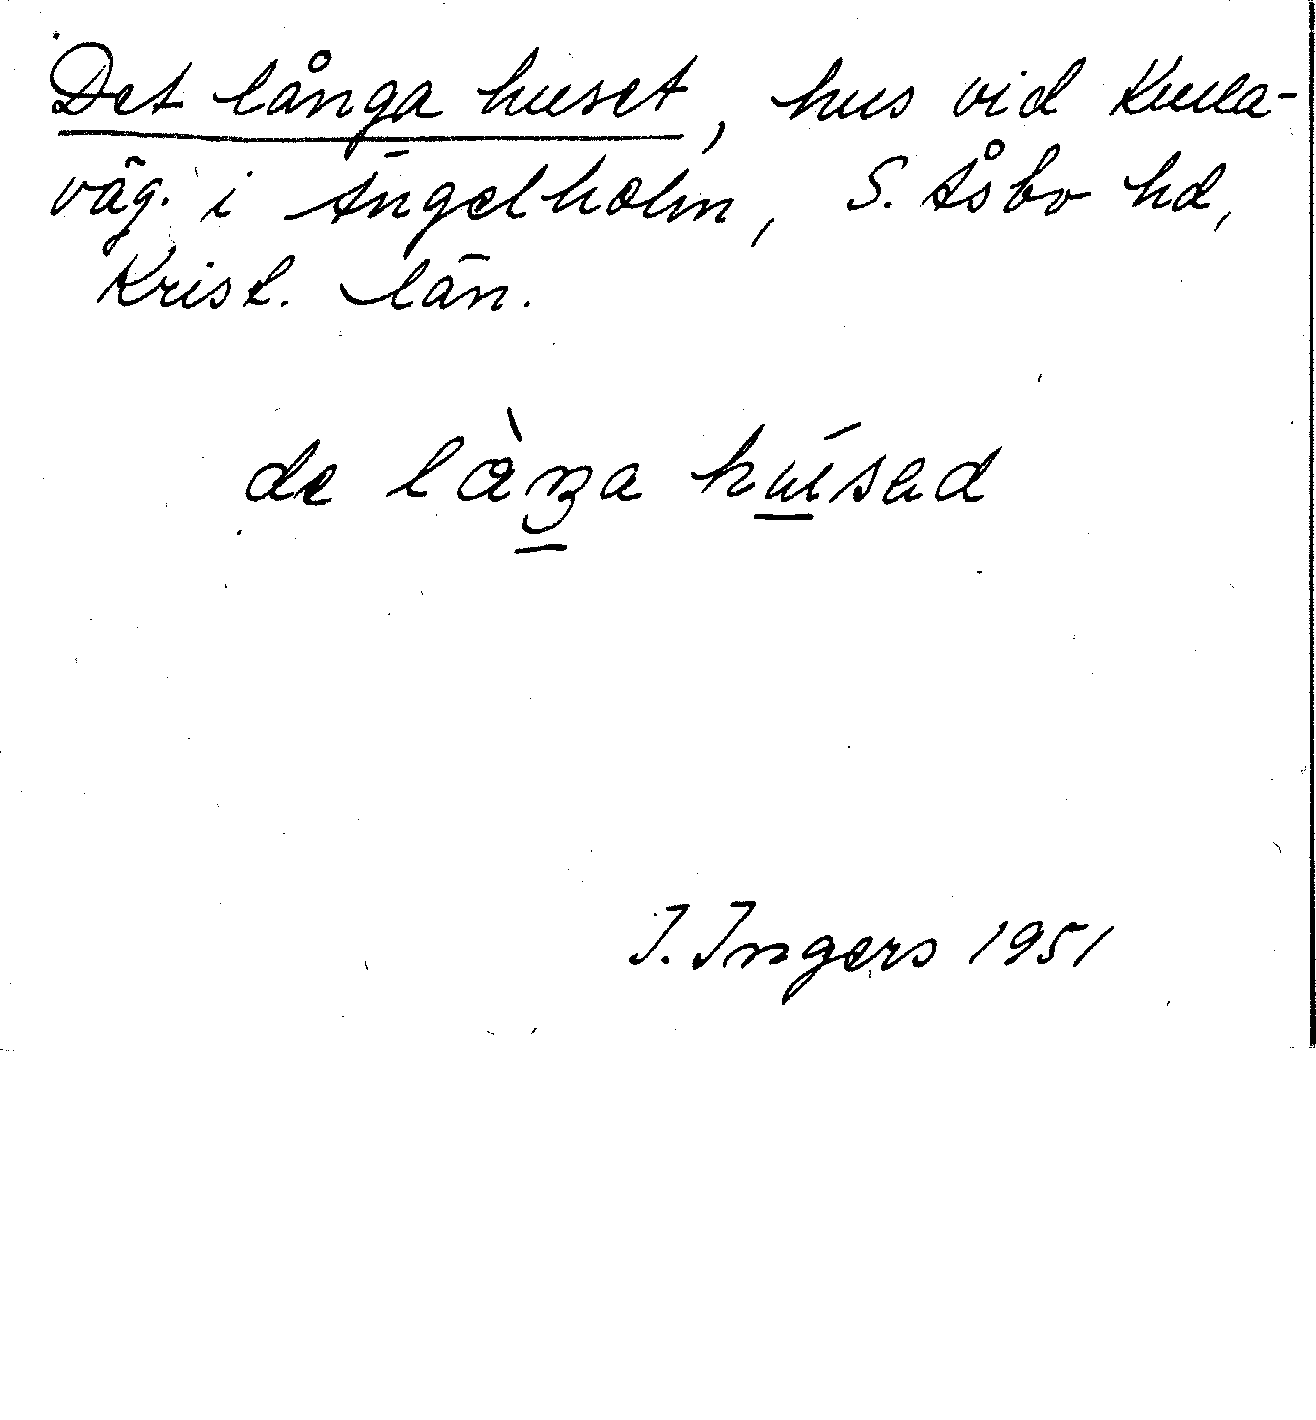 Det långa huset, hus vid Kulla-
väg. i Ängelholm, S. Åsbo hd,
Krist. län.
de làŋa húsad
I. Ingers 1951